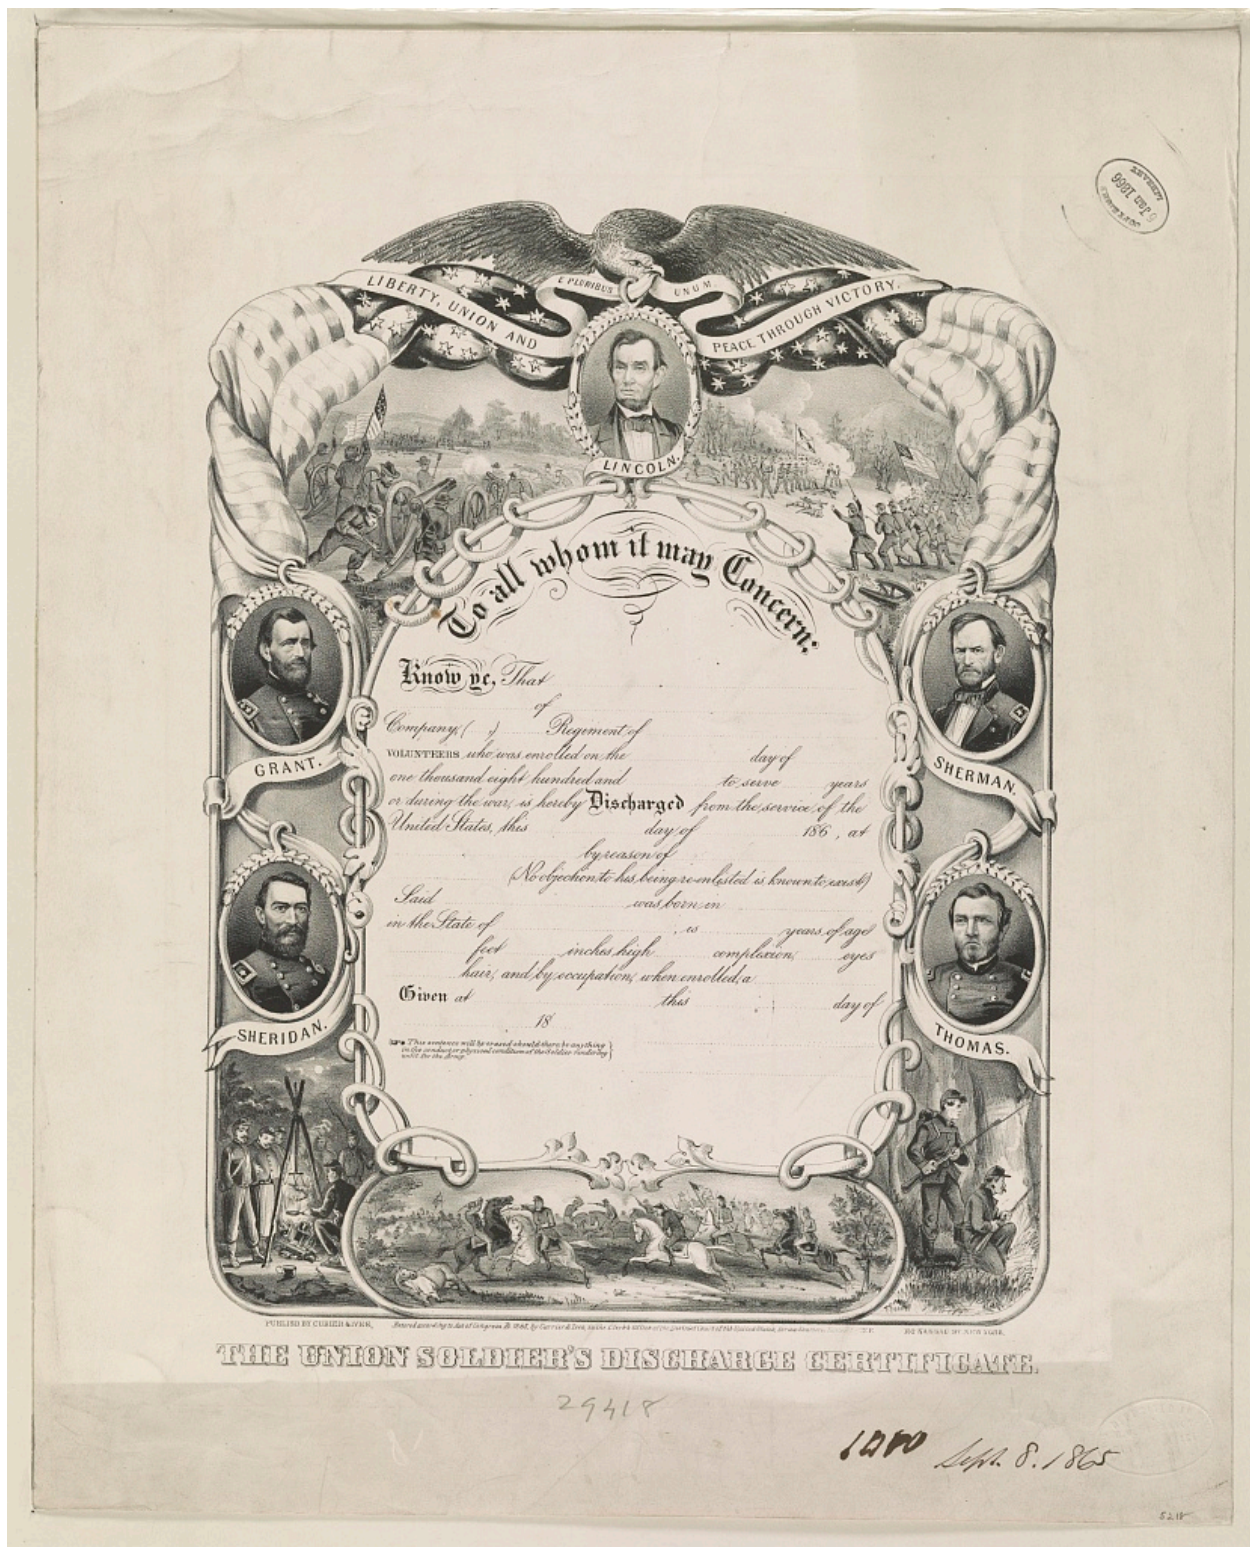 5 Jan 1866
LIBERTY, UNION AND
E PLURIBUS UNUM.
PEACE THROUGH VICTORY.
LINCOLN.
To all whom it may Concern:
GRANT.
SHERMAN.
SHERIDAN.
THOMAS.
Know ye, That
of
Company, ( ,) Regiment of
VOLUNTEERS who was enrolled on the day of
one thousand eight hundred and to serve years
or during the war, is hereby Discharged from the service of the
United States, this day of 186 , at
by reason of
(No objection to his being re-enlisted is known to exist)
Said was born in
in the State of , is years of age
feet inches high complexion, eyes
hair, and by occupation, when enrolled, a
Given at this day of
18
This sentence will be erased should there be anything
in the conduct or physical condition of the Soldier rendering
unfit for the Army.
Entered according to Act of Congress by Currier & Ives, in the Clerk's Office of the District Court of the United States
NEW YORK.
THE UNION SOLDIER'S DISCHARGE CERTIFICATE.
29418
Sept. 8. 1865
5218